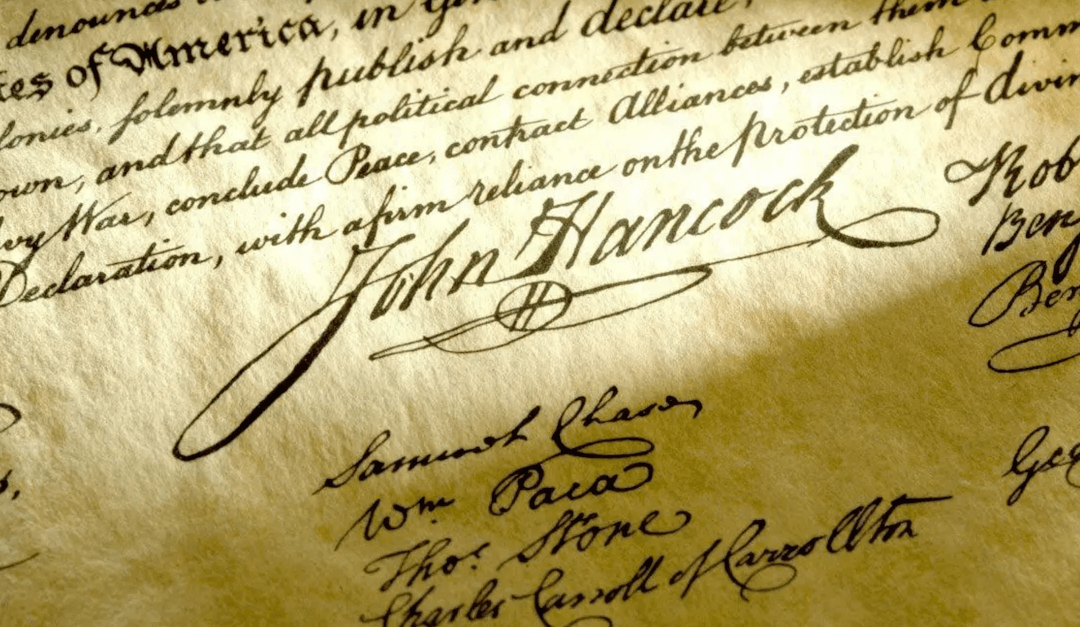 denounces
of America, in
solemnly publish and declare,
and that all political connection between them
War, conclude Peace, contract Alliances, establish
Declaration, with a firm reliance on the protection of
John Hancock
Samuel Chase
Wm. Paca
Thos. Stone
Charles Carroll of Carrollton
Rob
Benj
Benj
Geo